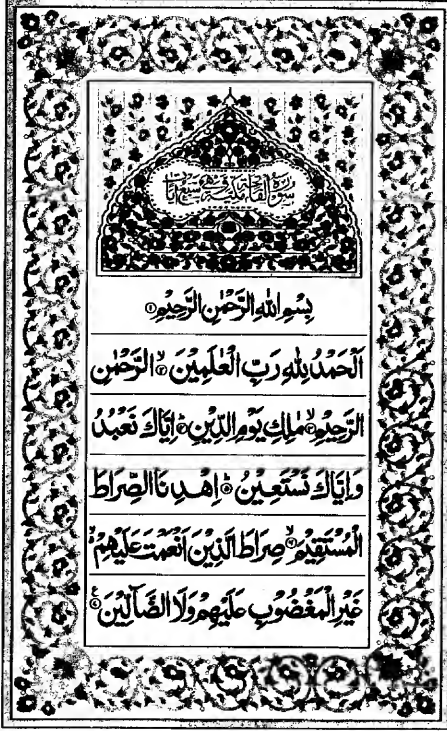 سُوْرَةُ الْفَاتِحَةِ مَكِّيَّةٌ وَّهِيَ سَبْعُ اٰيَاتٍ
بِسْمِ اللّٰهِ الرَّحْمٰنِ الرَّحِيْمِ ۝۱
اَلْحَمْدُ لِلّٰهِ رَبِّ الْعٰلَمِيْنَ ۝۲ۙ الرَّحْمٰنِ
الرَّحِيْمِ ۝۳ۙ مٰلِكِ يَوْمِ الدِّيْنِ ۝۴ؕ اِيَّاكَ نَعْبُدُ
وَاِيَّاكَ نَسْتَعِيْنُ ۝۵ؕ اِهْدِنَا الصِّرَاطَ
الْمُسْتَقِيْمَ ۝۶ۙ صِرَاطَ الَّذِيْنَ اَنْعَمْتَ عَلَيْهِمْ ۙ
غَيْرِ الْمَغْضُوْبِ عَلَيْهِمْ وَلَا الضَّآلِّيْنَ ۝۷ ع